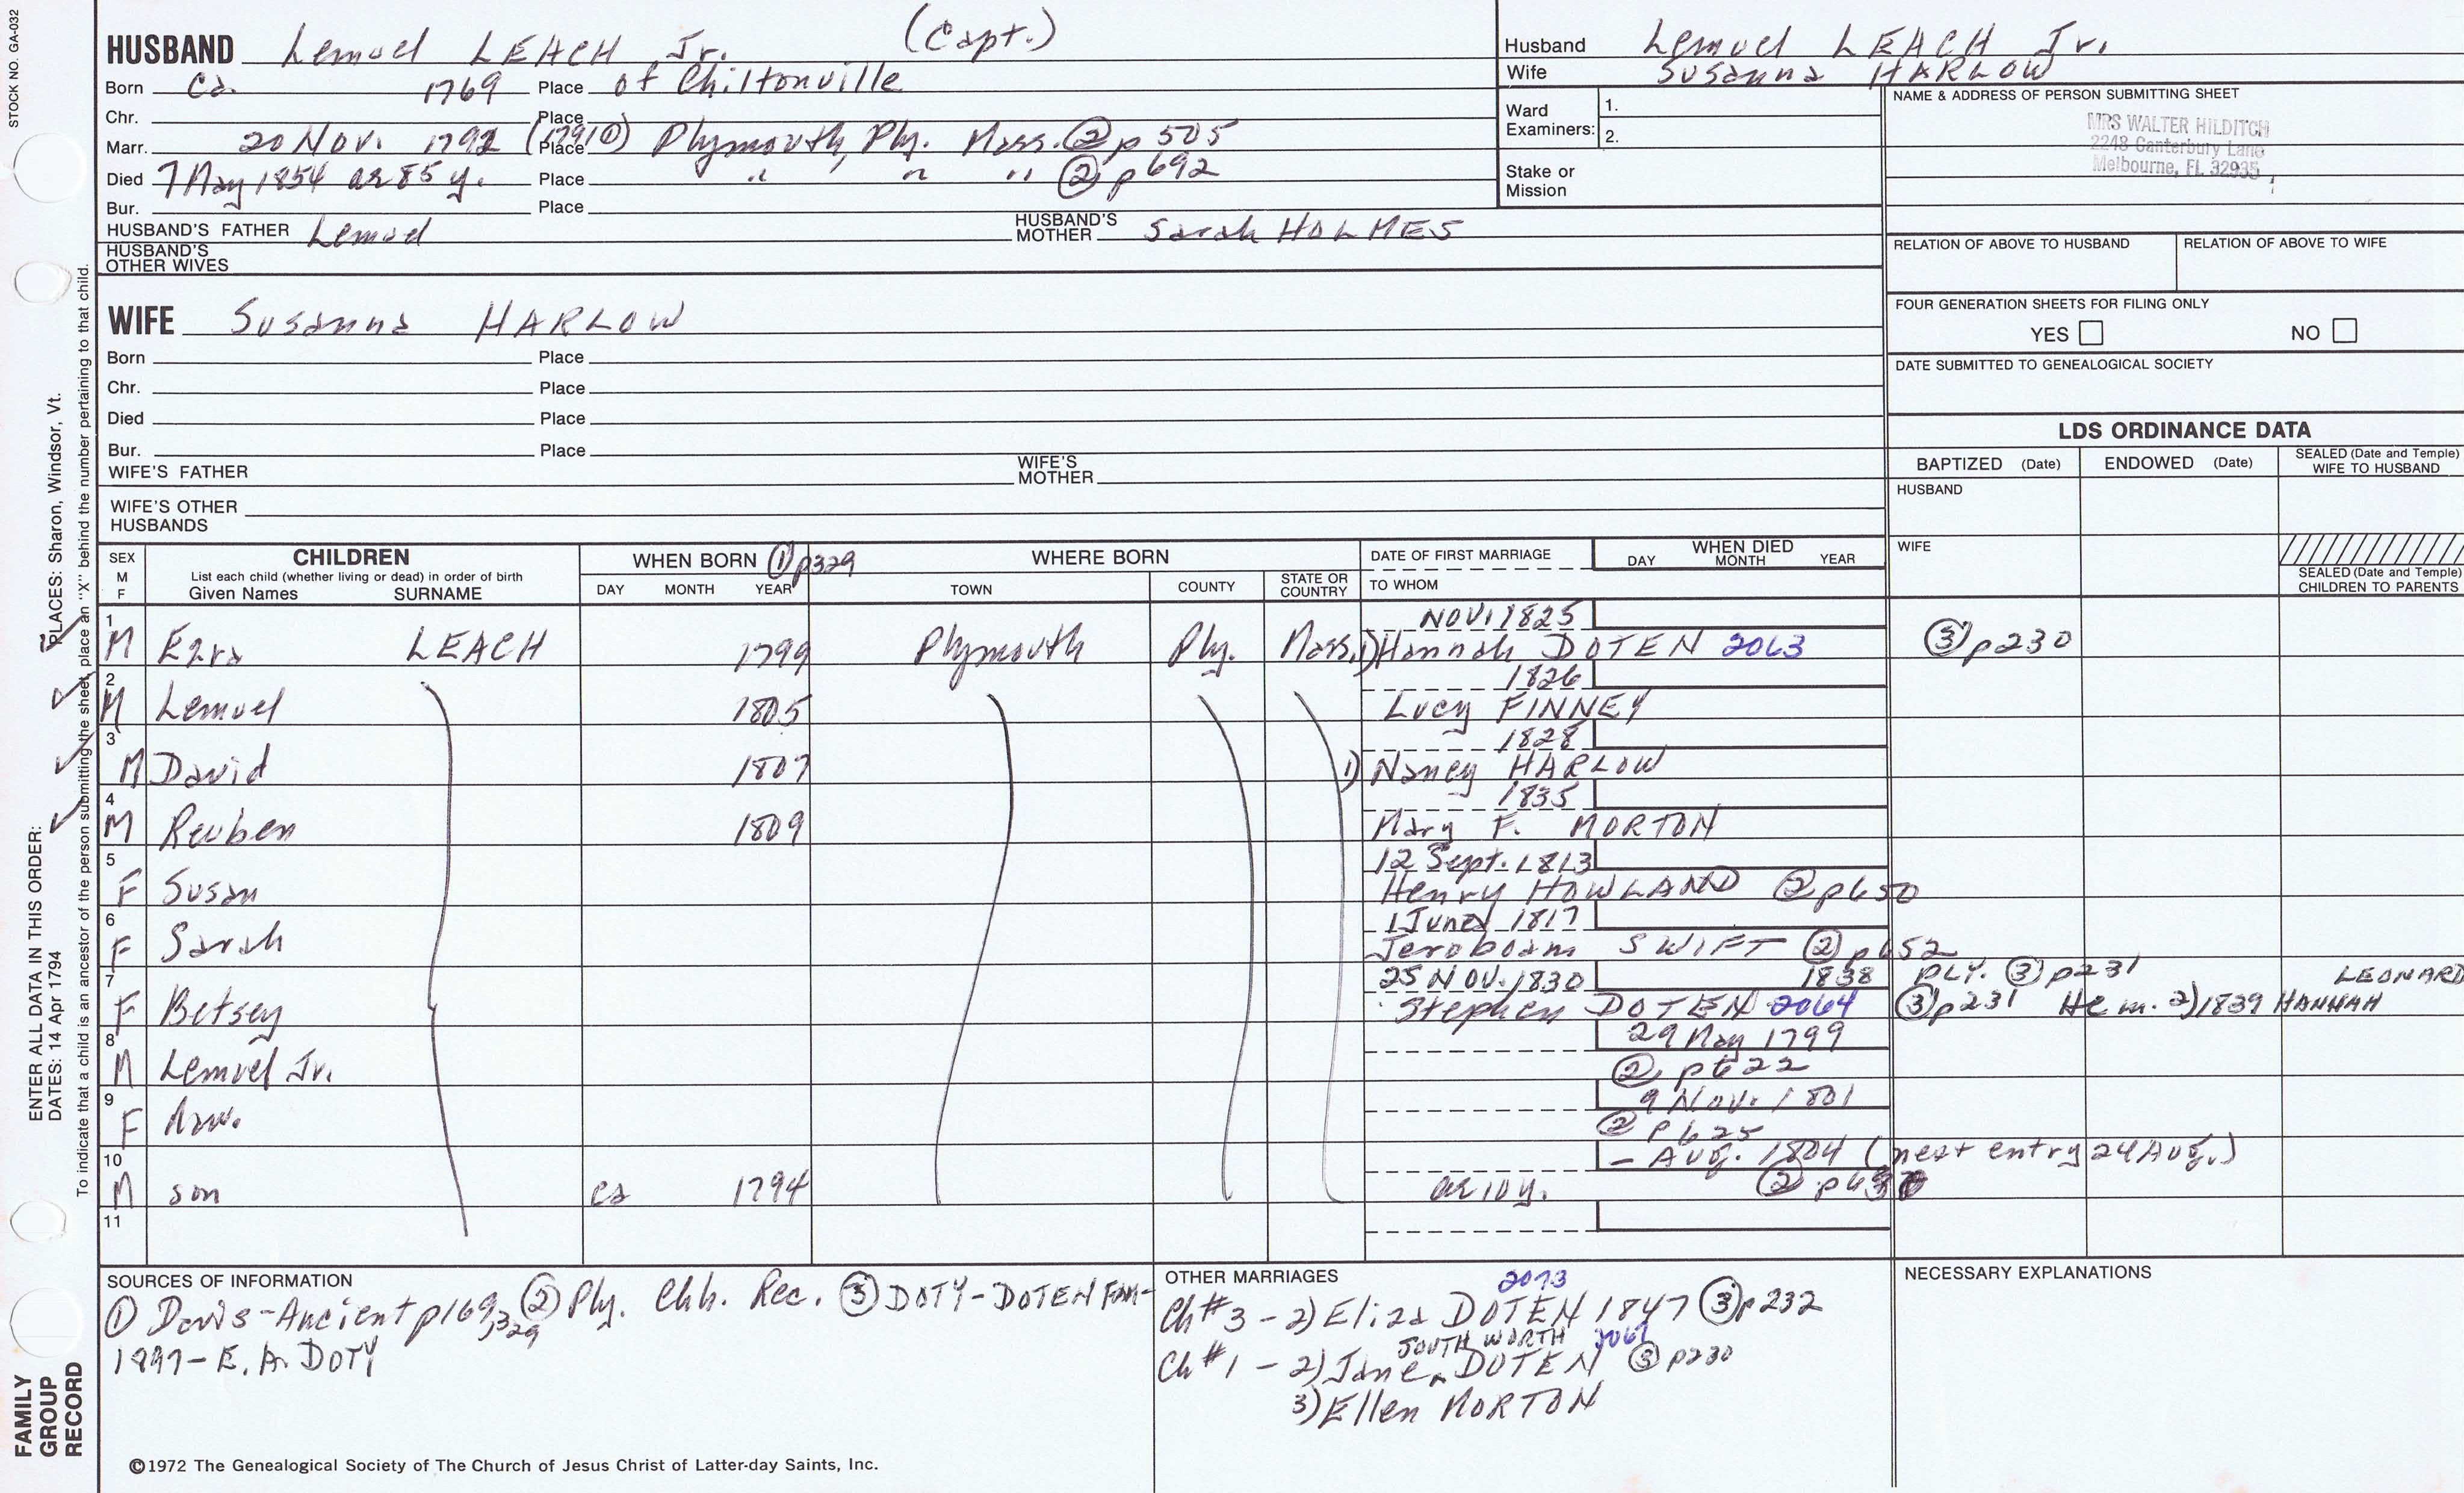 STOCK NO. GA-032
HUSBAND Lemuel LEACH Jr. (Capt.)
Born Ca. 1769 Place of Chiltonville
Chr. Place
Marr. 20 Nov. 1792 (1791①) Place Plymouth, Ply. Mass. ② p 505
Died 7 May 1854 ae 85 y. Place " " " ② p 692
Bur. Place
HUSBAND'S FATHER Lemuel HUSBAND'S MOTHER Sarah HOLMES
HUSBAND'S OTHER WIVES
Husband Lemuel LEACH Jr.
Wife Susanna HARLOW
Ward Examiners: 1.
2.
Stake or Mission
NAME & ADDRESS OF PERSON SUBMITTING SHEET
MRS WALTER HILDITCH
2248 Canterbury Lane
Melbourne, FL 32935
RELATION OF ABOVE TO HUSBAND RELATION OF ABOVE TO WIFE
FOUR GENERATION SHEETS FOR FILING ONLY
YES NO
DATE SUBMITTED TO GENEALOGICAL SOCIETY
WIFE Susanna HARLOW
Born Place
Chr. Place
Died Place
Bur. Place
WIFE'S FATHER WIFE'S MOTHER
WIFE'S OTHER HUSBANDS
LDS ORDINANCE DATA
BAPTIZED (Date) ENDOWED (Date) SEALED (Date and Temple) WIFE TO HUSBAND
HUSBAND
WIFE
SEALED (Date and Temple) CHILDREN TO PARENTS
SEX M F CHILDREN WHEN BORN ① p329 WHERE BORN DATE OF FIRST MARRIAGE WHEN DIED
List each child (whether living or dead) in order of birth
Given Names SURNAME DAY MONTH YEAR TOWN COUNTY STATE OR COUNTRY TO WHOM DAY MONTH YEAR
1 Nov. 1825
M Ezra LEACH 1799 Plymouth Ply. Mass. 1) Hannah DOTEN 2063 ③ p230
2 1826
M Lemuel 1805 Lucy FINNEY
3 1828
M David 1807 1) Nancy HARLOW
4 1835
M Reuben 1809 Mary F. MORTON
5 12 Sept. 1813
F Susan Henry HOWLAND ② p650
6 1 June 1817
F Sarah Jeroboam SWIFT ② p652
7 25 NOV. 1830 1838 PLY. ③ p231 LEONARD
F Betsey Stephen DOTEN 2064 ③ p231 He m. 2) 1839 HANNAH
8 29 May 1799
M Lemuel Jr. ② p622
9 9 Nov. 1801
F ② p625
10 – Aug. 1804 (next entry 24 Aug.)
M son ca 1794 ae 10 y. ②
11
SOURCES OF INFORMATION
① Davis-Ancient p169, 329 ② Ply. Chh. Rec. ③ DOTY-DOTEN FAM-
1897 - E. A. DOTY
OTHER MARRIAGES
2073
Ch #3 - 2) Eliza DOTEN 1847 ③ p232
SOUTHWORTH 2067
Ch #1 - 2) Jane ^ DOTEN ③ p230
3) Ellen MORTON
NECESSARY EXPLANATIONS
©1972 The Genealogical Society of The Church of Jesus Christ of Latter-day Saints, Inc.
FAMILY GROUP RECORD
ENTER ALL DATA IN THIS ORDER:
DATES: 14 Apr 1794
PLACES: Sharon, Windsor, Vt.
To indicate that a child is an ancestor of the person submitting the sheet, place an "X" behind the number pertaining to that child.